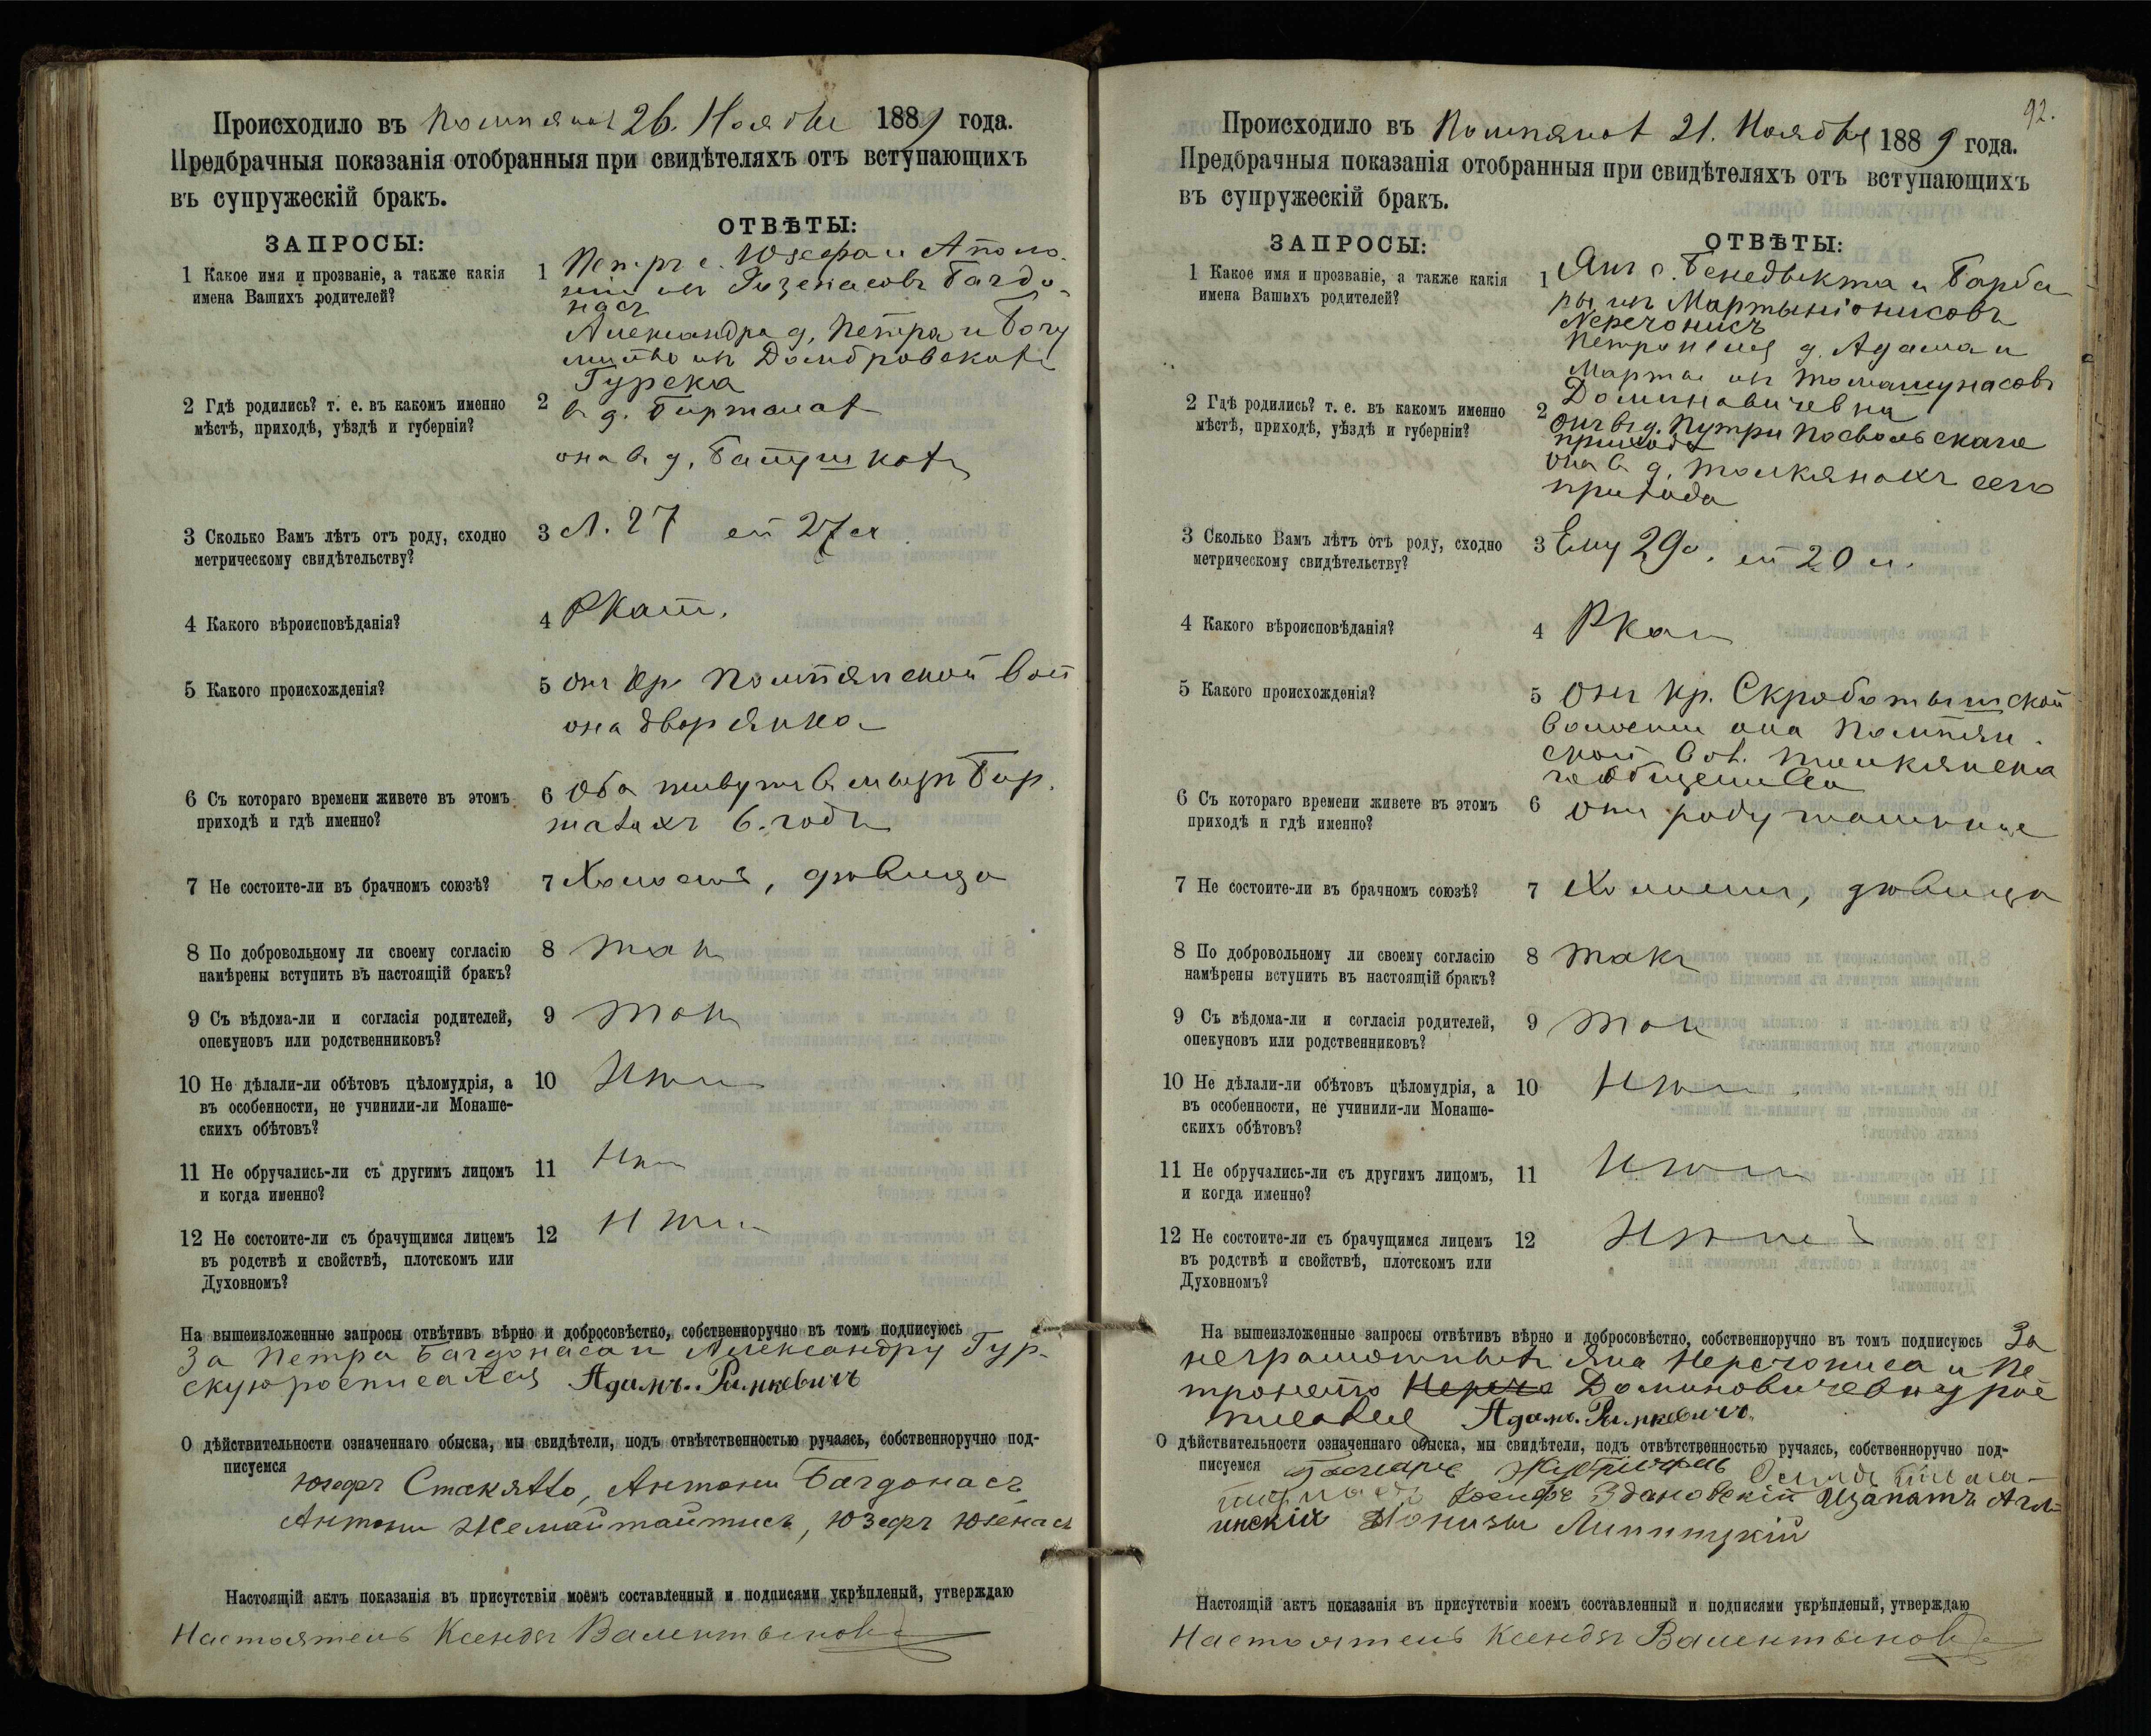 Происходило въ 26. Ноября 1889 года.
Предбрачныя показанія отобранныя при свидѣтеляхъ отъ вступающихъ
въ супружескій бракъ.
ЗАПРОСЫ:
ОТВѢТЫ:
1 Какое имя и прозваніе, а также какія
имена Вашихъ родителей?
1 Петръ с. Юзефа и Аполо-
Багдо-
насъ
Александра д. Петра и Богу
Домбровскихъ
Гурска
2 Гдѣ родились? т. е. въ какомъ именно
мѣстѣ, приходѣ, уѣздѣ и губерніи?
2 въ д.
она въ д.
3 Сколько Вамъ лѣтъ отъ роду, сходно
метрическому свидѣтельству?
3 Л. 27 ей 27 л
4 Какого вѣроисповѣданія?
4 Ркат.
5 Какого происхожденія?
5 онъ кр. Помпянской вол
она дворянка
6 Съ котораго времени живете въ этомъ
приходѣ и гдѣ именно?
6 Оба живутъ в
6. годъ
7 Не состоите-ли въ брачномъ союзѣ?
7 Холостъ, дѣвица
8 По добровольному ли своему согласію
намѣрены вступить въ настоящій бракъ?
8 такъ
9 Съ вѣдома-ли и согласія родителей,
опекуновъ или родственниковъ?
9 такъ
10 Не дѣлали-ли обѣтовъ цѣломудрія, а
въ особенности, не учинили-ли Монаше-
скихъ обѣтовъ?
10 Нѣтъ
11 Не обручались-ли съ другимъ лицомъ
и когда именно?
11 Нѣтъ
12 Не состоите-ли съ брачущимся лицемъ
въ родствѣ и свойствѣ, плотскомъ или
Духовномъ?
12 Нѣтъ
На вышеизложенные запросы отвѣтивъ вѣрно и добросовѣстно, собственноручно въ томъ подписуюсь
За Петра Багдонаса и Александру Гур-
скую росписался Адамъ Римкевичъ
О дѣйствительности означеннаго обыска, мы свидѣтели, подъ отвѣтственностью ручаясь, собственноручно под-
писуемся
Юзефъ Антони Багдонасъ
Антони Жемайтайтисъ, Юзефъ Юхенасъ
Настоящій актъ показанія въ присутствіи моемъ составленный и подписями укрѣпленый, утверждаю
Настоятель Ксендзъ Валентыновъ
92.
Происходило въ 21. Ноября 1889 года.
Предбрачныя показанія отобранныя при свидѣтеляхъ отъ вступающихъ
въ супружескій бракъ.
ЗАПРОСЫ:
ОТВѢТЫ:
1 Какое имя и прозваніе, а также какія
имена Вашихъ родителей?
1 Янъ с. Бенедыкта и Барба-
ры изъ Мартыніонисовъ
Неречонисъ
Петронеля д. Адама и
Марты изъ Томашунасовъ
Доминовичевна
2 Гдѣ родились? т. е. въ какомъ именно
мѣстѣ, приходѣ, уѣздѣ и губерніи?
2 онъ въ д. Путри Посвольскаго
прихода
она в д. Толкянахъ сего
прихода
3 Сколько Вамъ лѣтъ отъ роду, сходно
метрическому свидѣтельству?
3 Ему 29 ей 20 л.
4 Какого вѣроисповѣданія?
4 Ркат
5 Какого происхожденія?
5 Онъ кр. Скроботышской
волости она Помпян-
ской вол.
6 Съ котораго времени живете въ этомъ
приходѣ и гдѣ именно?
6 Отъ роду
7 Не состоите-ли въ брачномъ союзѣ?
7 Холостъ, дѣвица
8 По добровольному ли своему согласію
намѣрены вступить въ настоящій бракъ?
8 такъ
9 Съ вѣдома-ли и согласія родителей,
опекуновъ или родственниковъ?
9 такъ
10 Не дѣлали-ли обѣтовъ цѣломудрія, а
въ особенности, не учинили-ли Монаше-
скихъ обѣтовъ?
10 Нѣтъ
11 Не обручались-ли съ другимъ лицомъ,
и когда именно?
11 Нѣтъ
12 Не состоите-ли съ брачущимся лицемъ
въ родствѣ и свойствѣ, плотскомъ или
Духовномъ?
12 Нѣтъ
На вышеизложенные запросы отвѣтивъ вѣрно и добросовѣстно, собственноручно въ томъ подписуюсь За
неграмотныхъ Яна Неречониса и Пе
тронелю Нереч Доминовичевну рос
писался Адамъ Римкевичъ.
О дѣйствительности означеннаго обыска, мы свидѣтели, подъ отвѣтственностью ручаясь, собственноручно под-
писуемся
Іосифъ Здановскій
Діонизы Липницкій
Настоящій актъ показанія въ присутствіи моемъ составленный и подписями укрѣпленый, утверждаю
Настоятель Ксендзъ Валентыновъ